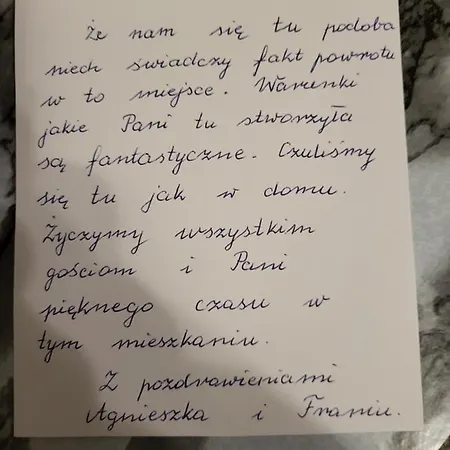 Że nam się tu podoba
niech świadczy fakt powrotu
w to miejsce. Warunki
jakie Pani tu stworzyła
są fantastyczne. Czuliśmy
się tu jak w domu.
Życzymy wszystkim
gościom i Pani
pięknego czasu w
tym mieszkaniu.
Z pozdrowieniami
Agnieszka i Franiu.